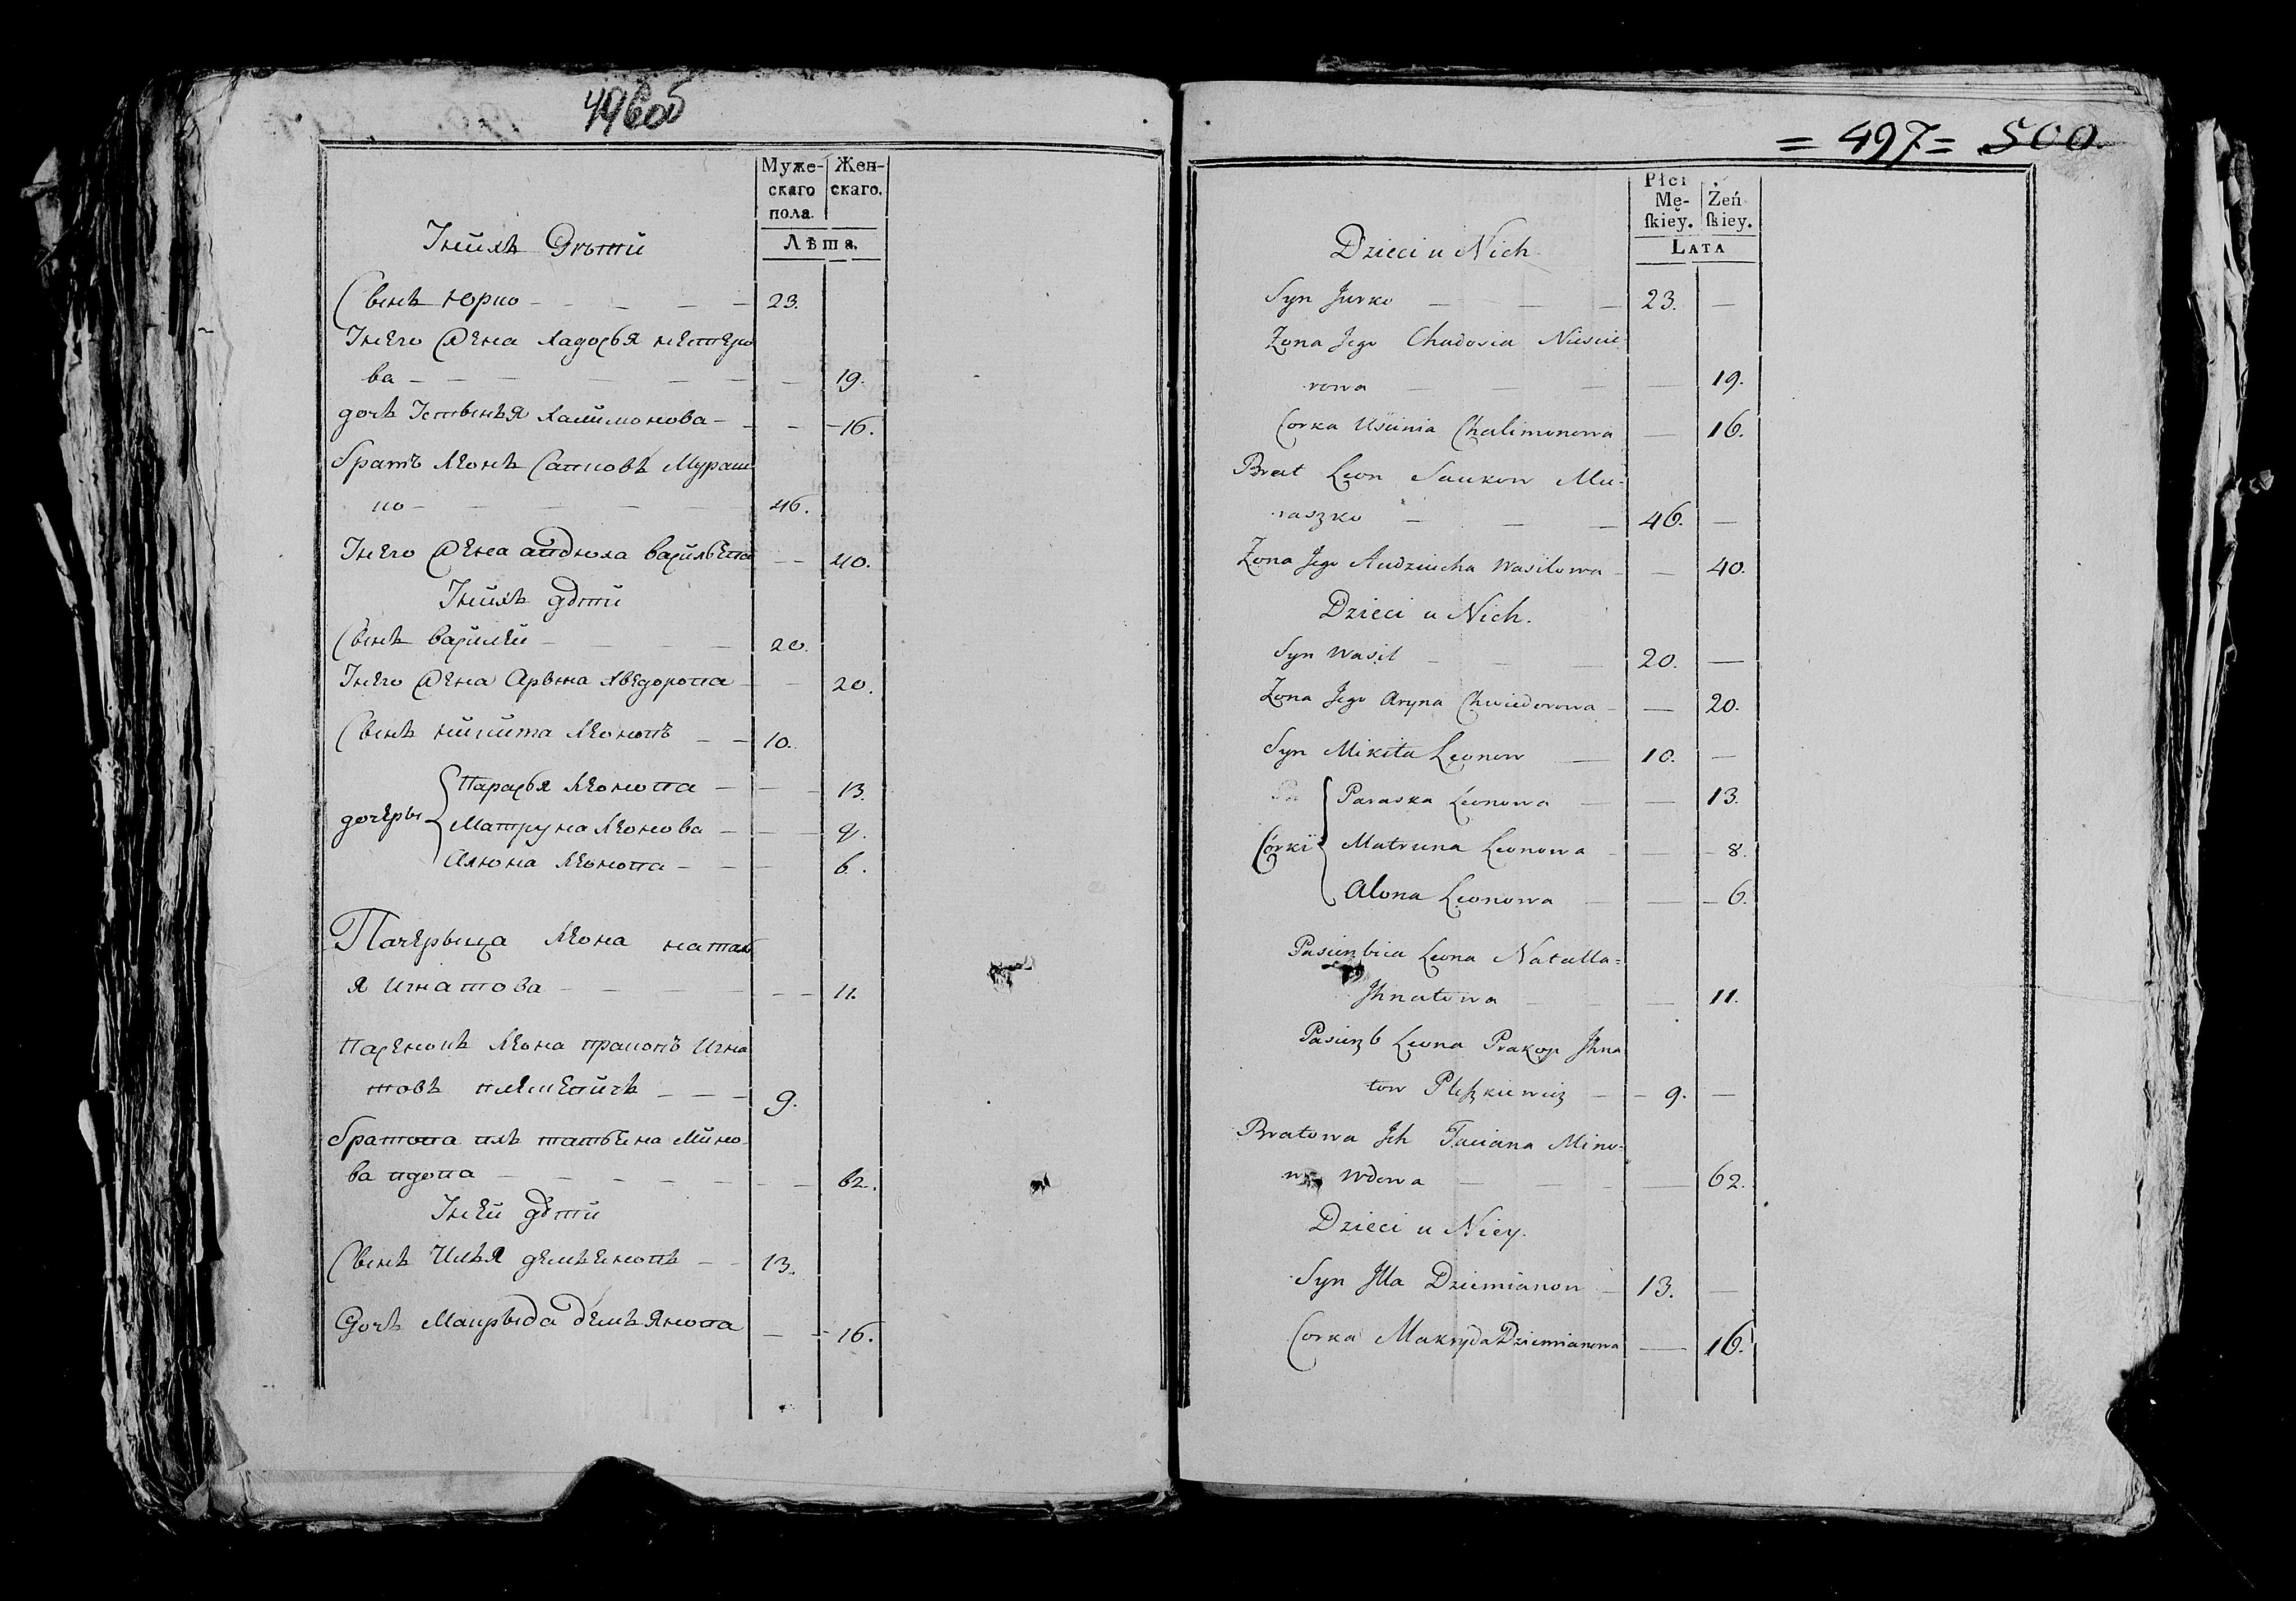 496об
Муже-
скаго
пола.
Жен-
скаго.
Лѣта.
Унихъ Дѣти
Сынъ Юрко 23.
Унего Жена Хадосья Нестеро
ва 19.
дочъ Устынья Халимонова 16.
Братъ Леонъ Савковъ Мураш
ко 46.
Унего Жена авдюха василева 40.
Унихъ дѣти
Сынъ василей 20.
Унего Жена Арына Хведорова 20.
Сынъ никита Леоновъ 10.
дочеры
Парасья Леонова 13.
Матруна Леонова 8.
Алюна Леонова 6.
Пачерыца Леона натал
я игнатова 11.
Пасенокъ Леона пракопъ Игна
товъ 9.
Братова ихъ татьяна Мино
ва вдова 62.
Уней дѣти
Сынъ Илья демьеновъ 13.
Дочъ Макрыда демьянова 16.
= 497 = 500.
Płci
Mę-
ſkiey.
Żeń
ſkiey.
LATA
Dzieci u Nich
Syn Jurko 23. —
Zona Jego Chadosia Niescie
rowa — 19.
Corka Uscinia Chalimonowa — 16.
Brat Leon Saukow Mu-
raszko 46. —
Zona Jego Audziucha Wasilowa — 40.
Dzieci u Nich.
Syn Wasil 20. —
Zona Jego Aryna Chwiedorowa — 20.
Syn Mikita Leonow 10. —
Córki
Paraska Leonowa — 13.
Matruna Leonowa — 8.
Alona Leonowa — 6.
Pasierzbica Leona Natalla=
Jhnatowa — 11.
Pasierzb Leona Prakop Jhna
tow Pleszkiewicz 9. —
Bratowa Jch Taciana Mino-
wa Wdowa — 62.
Dzieci u Niey.
Syn Jlla Dziemianow 13. —
Corka Makryda Dziemianowa — 16.